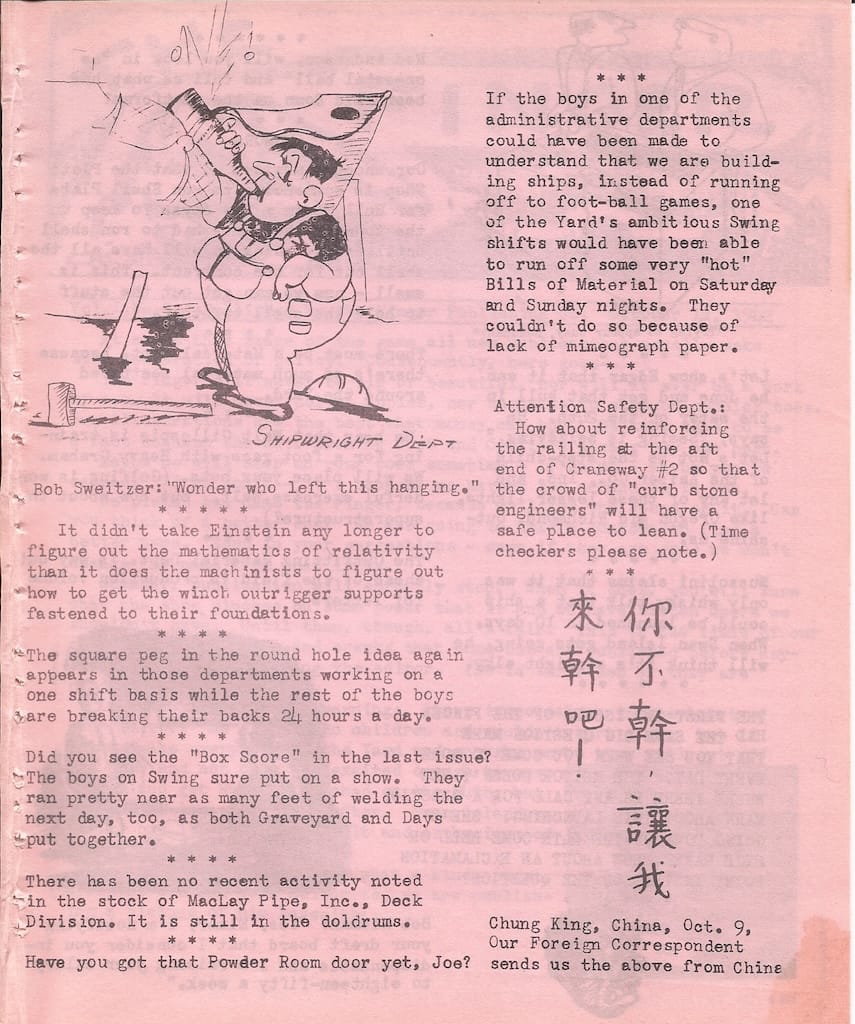 SHIPWRIGHT DEPT
Bob Sweitzer: "Wonder who left this hanging."
* * * * *
It didn't take Einstein any longer to
figure out the mathematics of relativity
than it does the machinists to figure out
how to get the winch outrigger supports
fastened to their foundations.
* * * *
The square peg in the round hole idea again
appears in those departments working on a
one shift basis while the rest of the boys
are breaking their backs 24 hours a day.
* * * *
Did you see the "Box Score" in the last issue?
The boys on Swing sure put on a show. They
ran pretty near as many feet of welding the
next day, too, as both Graveyard and Days
put together.
* * * *
There has been no recent activity noted
in the stock of MacLay Pipe, Inc., Deck
Division. It is still in the doldrums.
* * * *
Have you got that Powder Room door yet, Joe?
* * *
If the boys in one of the
administrative departments
could have been made to
understand that we are build-
ing ships, instead of running
off to foot-ball games, one
of the Yard's ambitious Swing
shifts would have been able
to run off some very "hot"
Bills of Material on Saturday
and Sunday nights. They
couldn't do so because of
lack of mimeograph paper.
* * *
Attention Safety Dept.:
How about reinforcing
the railing at the aft
end of Craneway #2 so that
the crowd of "curb stone
engineers" will have a
safe place to lean. (Time
checkers please note.)
* * *
你不幹,讓我
來幹吧!
Chung King, China, Oct. 9,
Our Foreign Correspondent
sends us the above from China